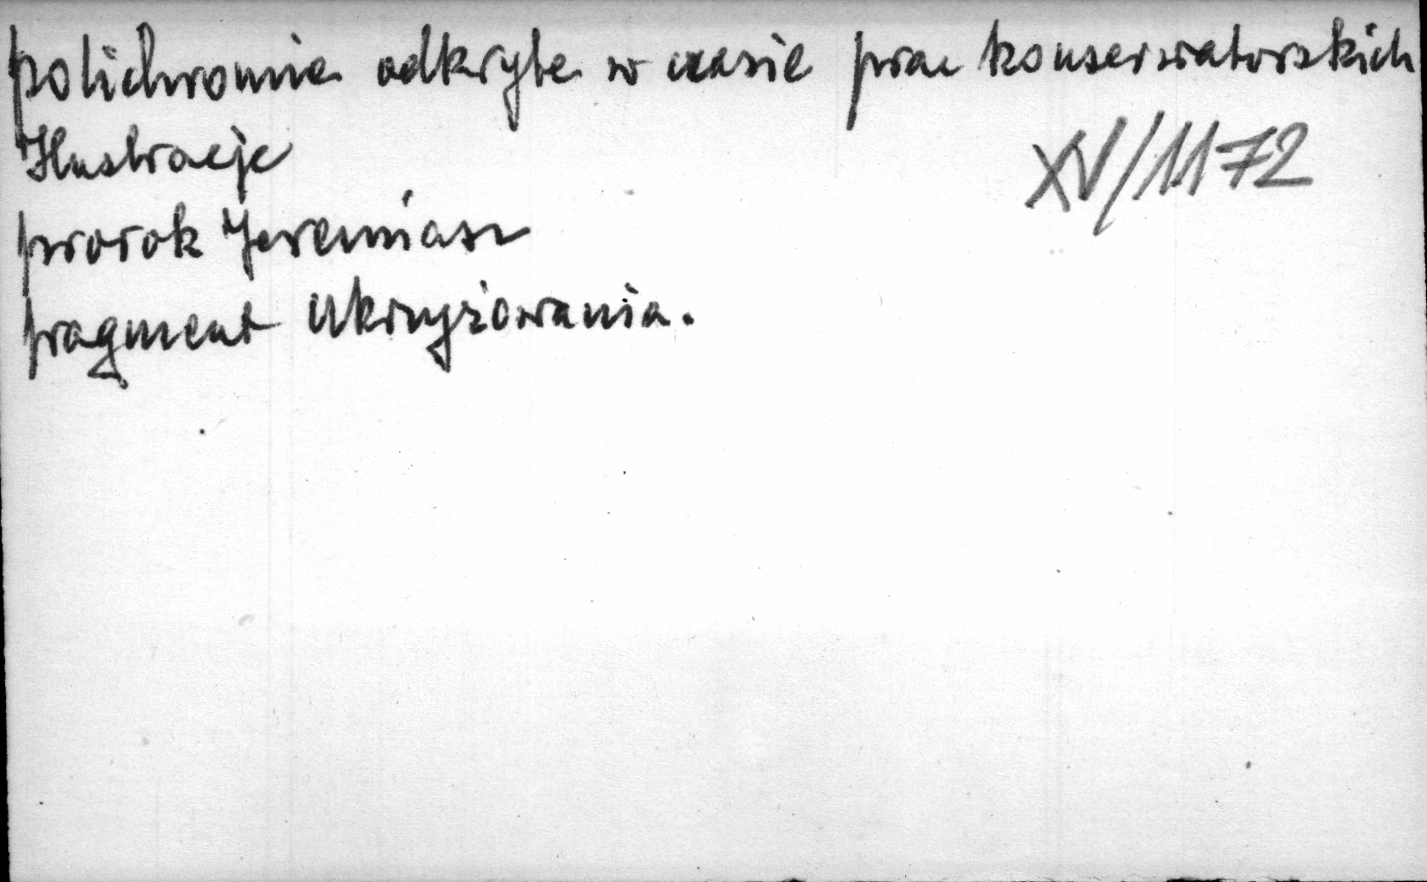 polichromie odkryte w czasie prac konserwatorskich
Ilustracje
XV/1172
prorok Jeremiasz
fragment Ukrzyżowania.